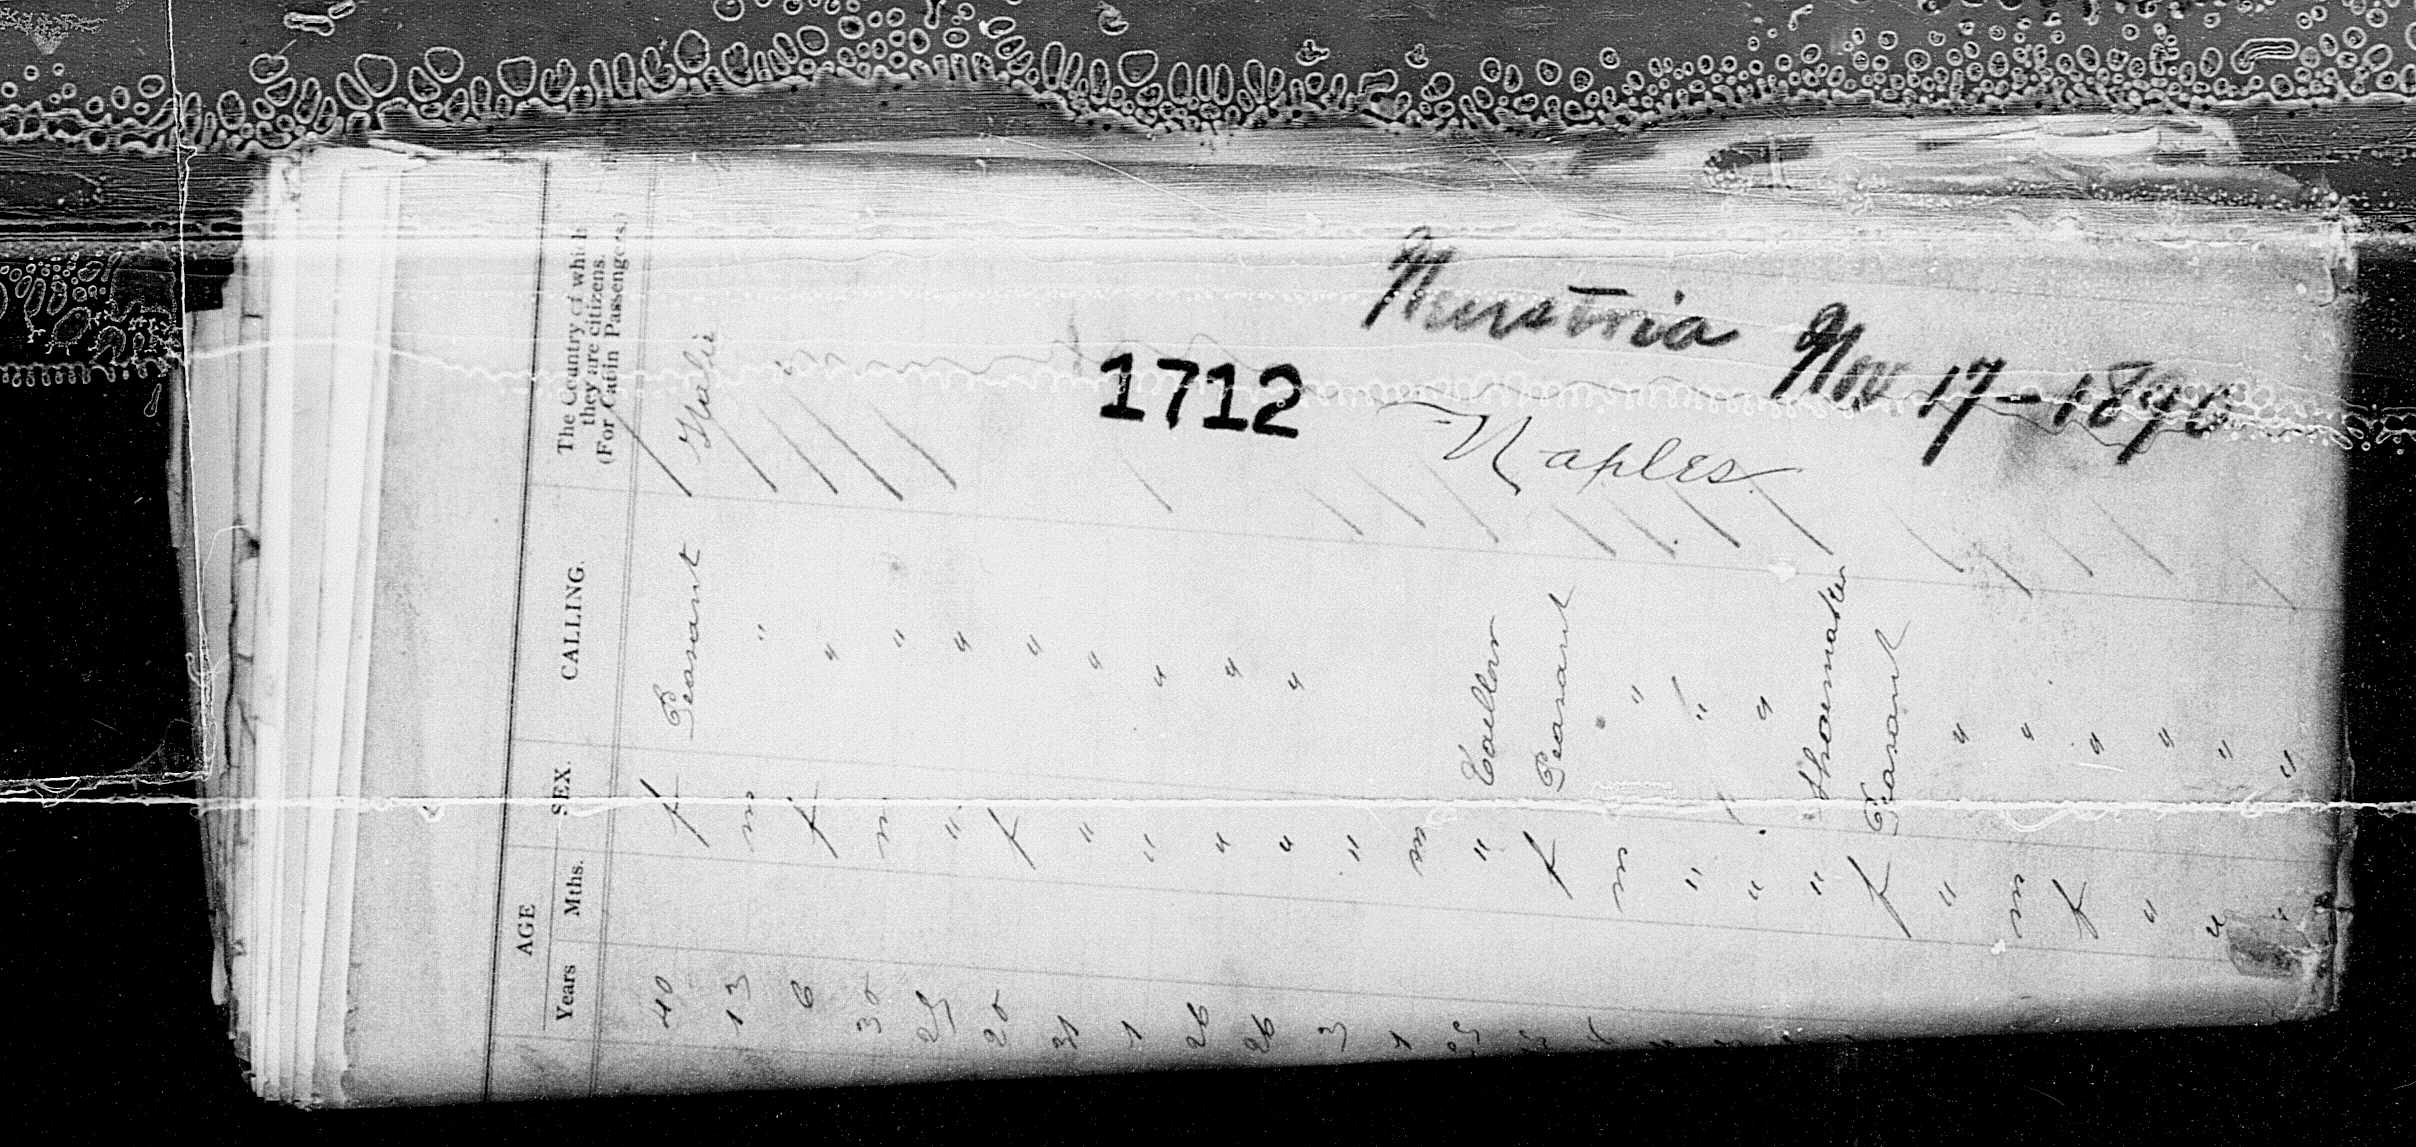 Neustria Nov 17-1896
1712
Naples
AGE
Years Mths. SEX. CALLING. The Country of which
they are citizens.
(For Cabin Passengers.)
40 f Peasant Italie
13 m "
6 f "
30 m "
29 " "
20 f "
31 " "
1 " "
26 " "
26 " "
3 "
1 m
29 "
f Peasant
m "
" "
" "
" Shoemaker
f Peasant
" "
m "
f "
" "
" "
" "